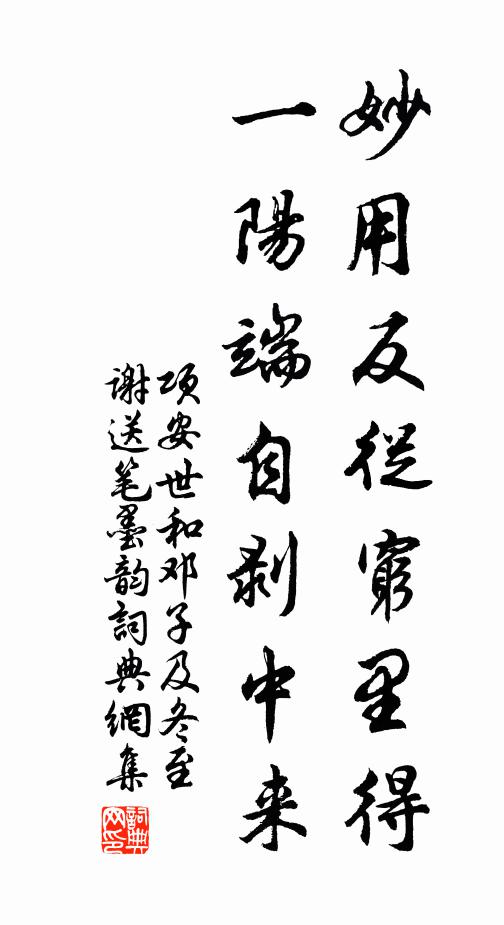 妙用反從窮里得
一陽端自剥中来
项安世和邓子及冬至
谢送笔墨韵詞典網集
詞典
网印